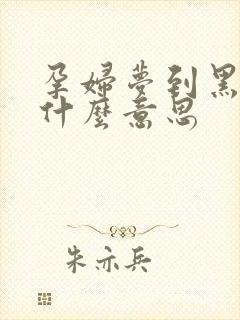 孕婦夢到黑
什麼意思
朱亦兵